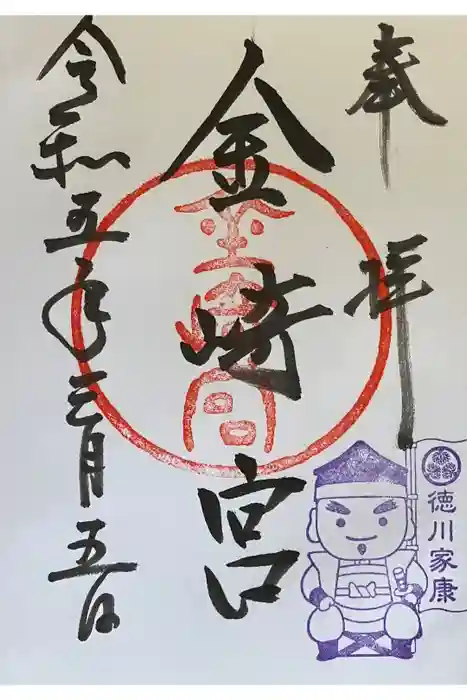 奉拝
金崎宮
金崎宮
令和五年三月五日
徳川家康